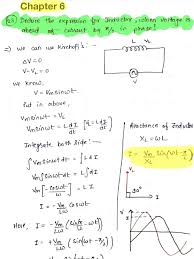 Chapter 6
Derive the expression for Inductor, when voltage is
ahead of current by π/2 in phase?
⇒ we can use Kirchoff's:-
ΔV = 0
V-VL = 0
we know,
V=Vm sinωt
put in above,
Vm sinωt - VL = 0
Vm sinωt = L dI/dt
Integrate both side:-
∫Vm sinωt = ∫L dI
Vm ∫sinωt dt = L∫dI
I = -Vm/Lω cosωt
Here, I = -Vm/Lω sin(π/2 - ωt)
I = Vm/Lω sin(ωt - π/2)
L VL
V
Reactance of Inductor
XL = ωL
I = Vm/XL sin(ωt - π/2)
90°